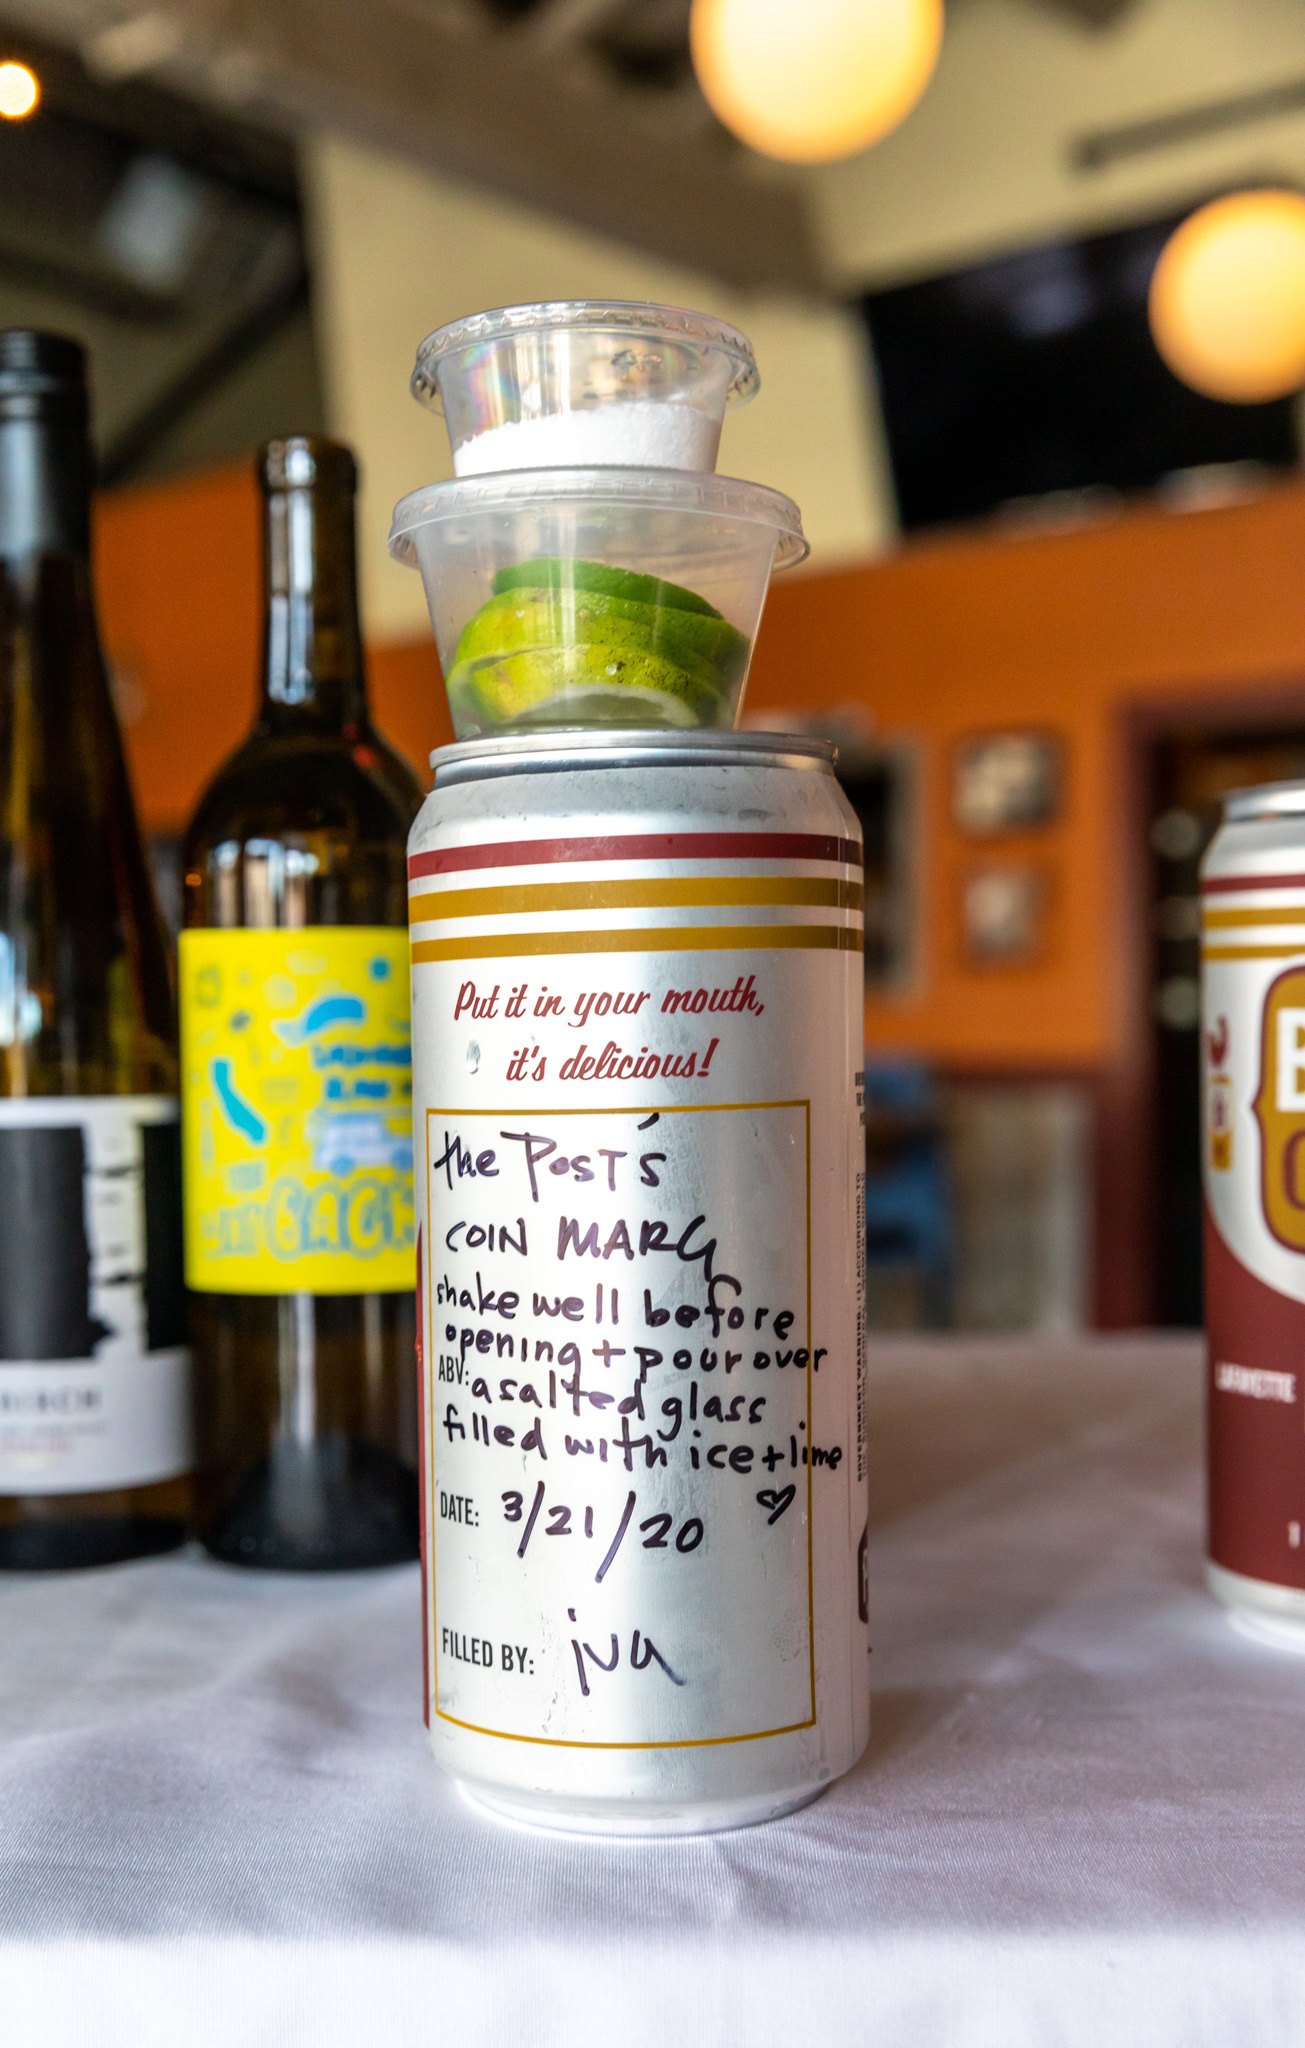 Put it in your mouth,
it's delicious!
the Post's
COIN MARG
shake well before
opening + pour over
ABV: a salted glass
filled with ice + lime
DATE: 3/21/20
FILLED BY: iva
GOVERNMENT WARNING: (1) ACCORDING TO
BIRCH
LAFAYETTE